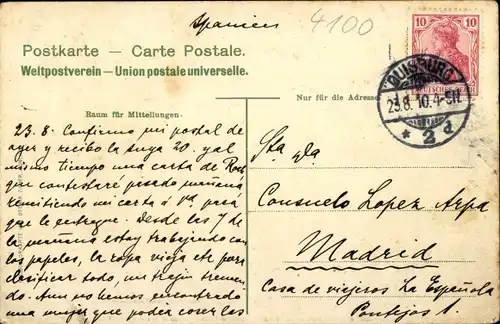 Spanien
4100
Postkarte — Carte Postale.
Weltpostverein — Union postale universelle.
10 10
DEUTSCHES REICH
DUISBURG
23.8.10.4-5N.
* 2 d
Nur für die Adresse
Raum für Mitteilungen:
23.8. Confirmo mi postal de
ayer y recibo la suya 20. y al
mismo tiempo una carta de
que contestaré pasado mañana
remitiendo mi carta á Vd. para
que le entregue. Desde las 7 de
la mañana estoy trabajando con
los papeles, la ropa vieja etc para
clasificar todo, un trajin tremen-
do. Aun no hemos encontrado
una mujer que poder coser los
Sta Da
Consuelo Lopez Arpa
Madrid
Casa de viajeros La Española
Pontejos 1.